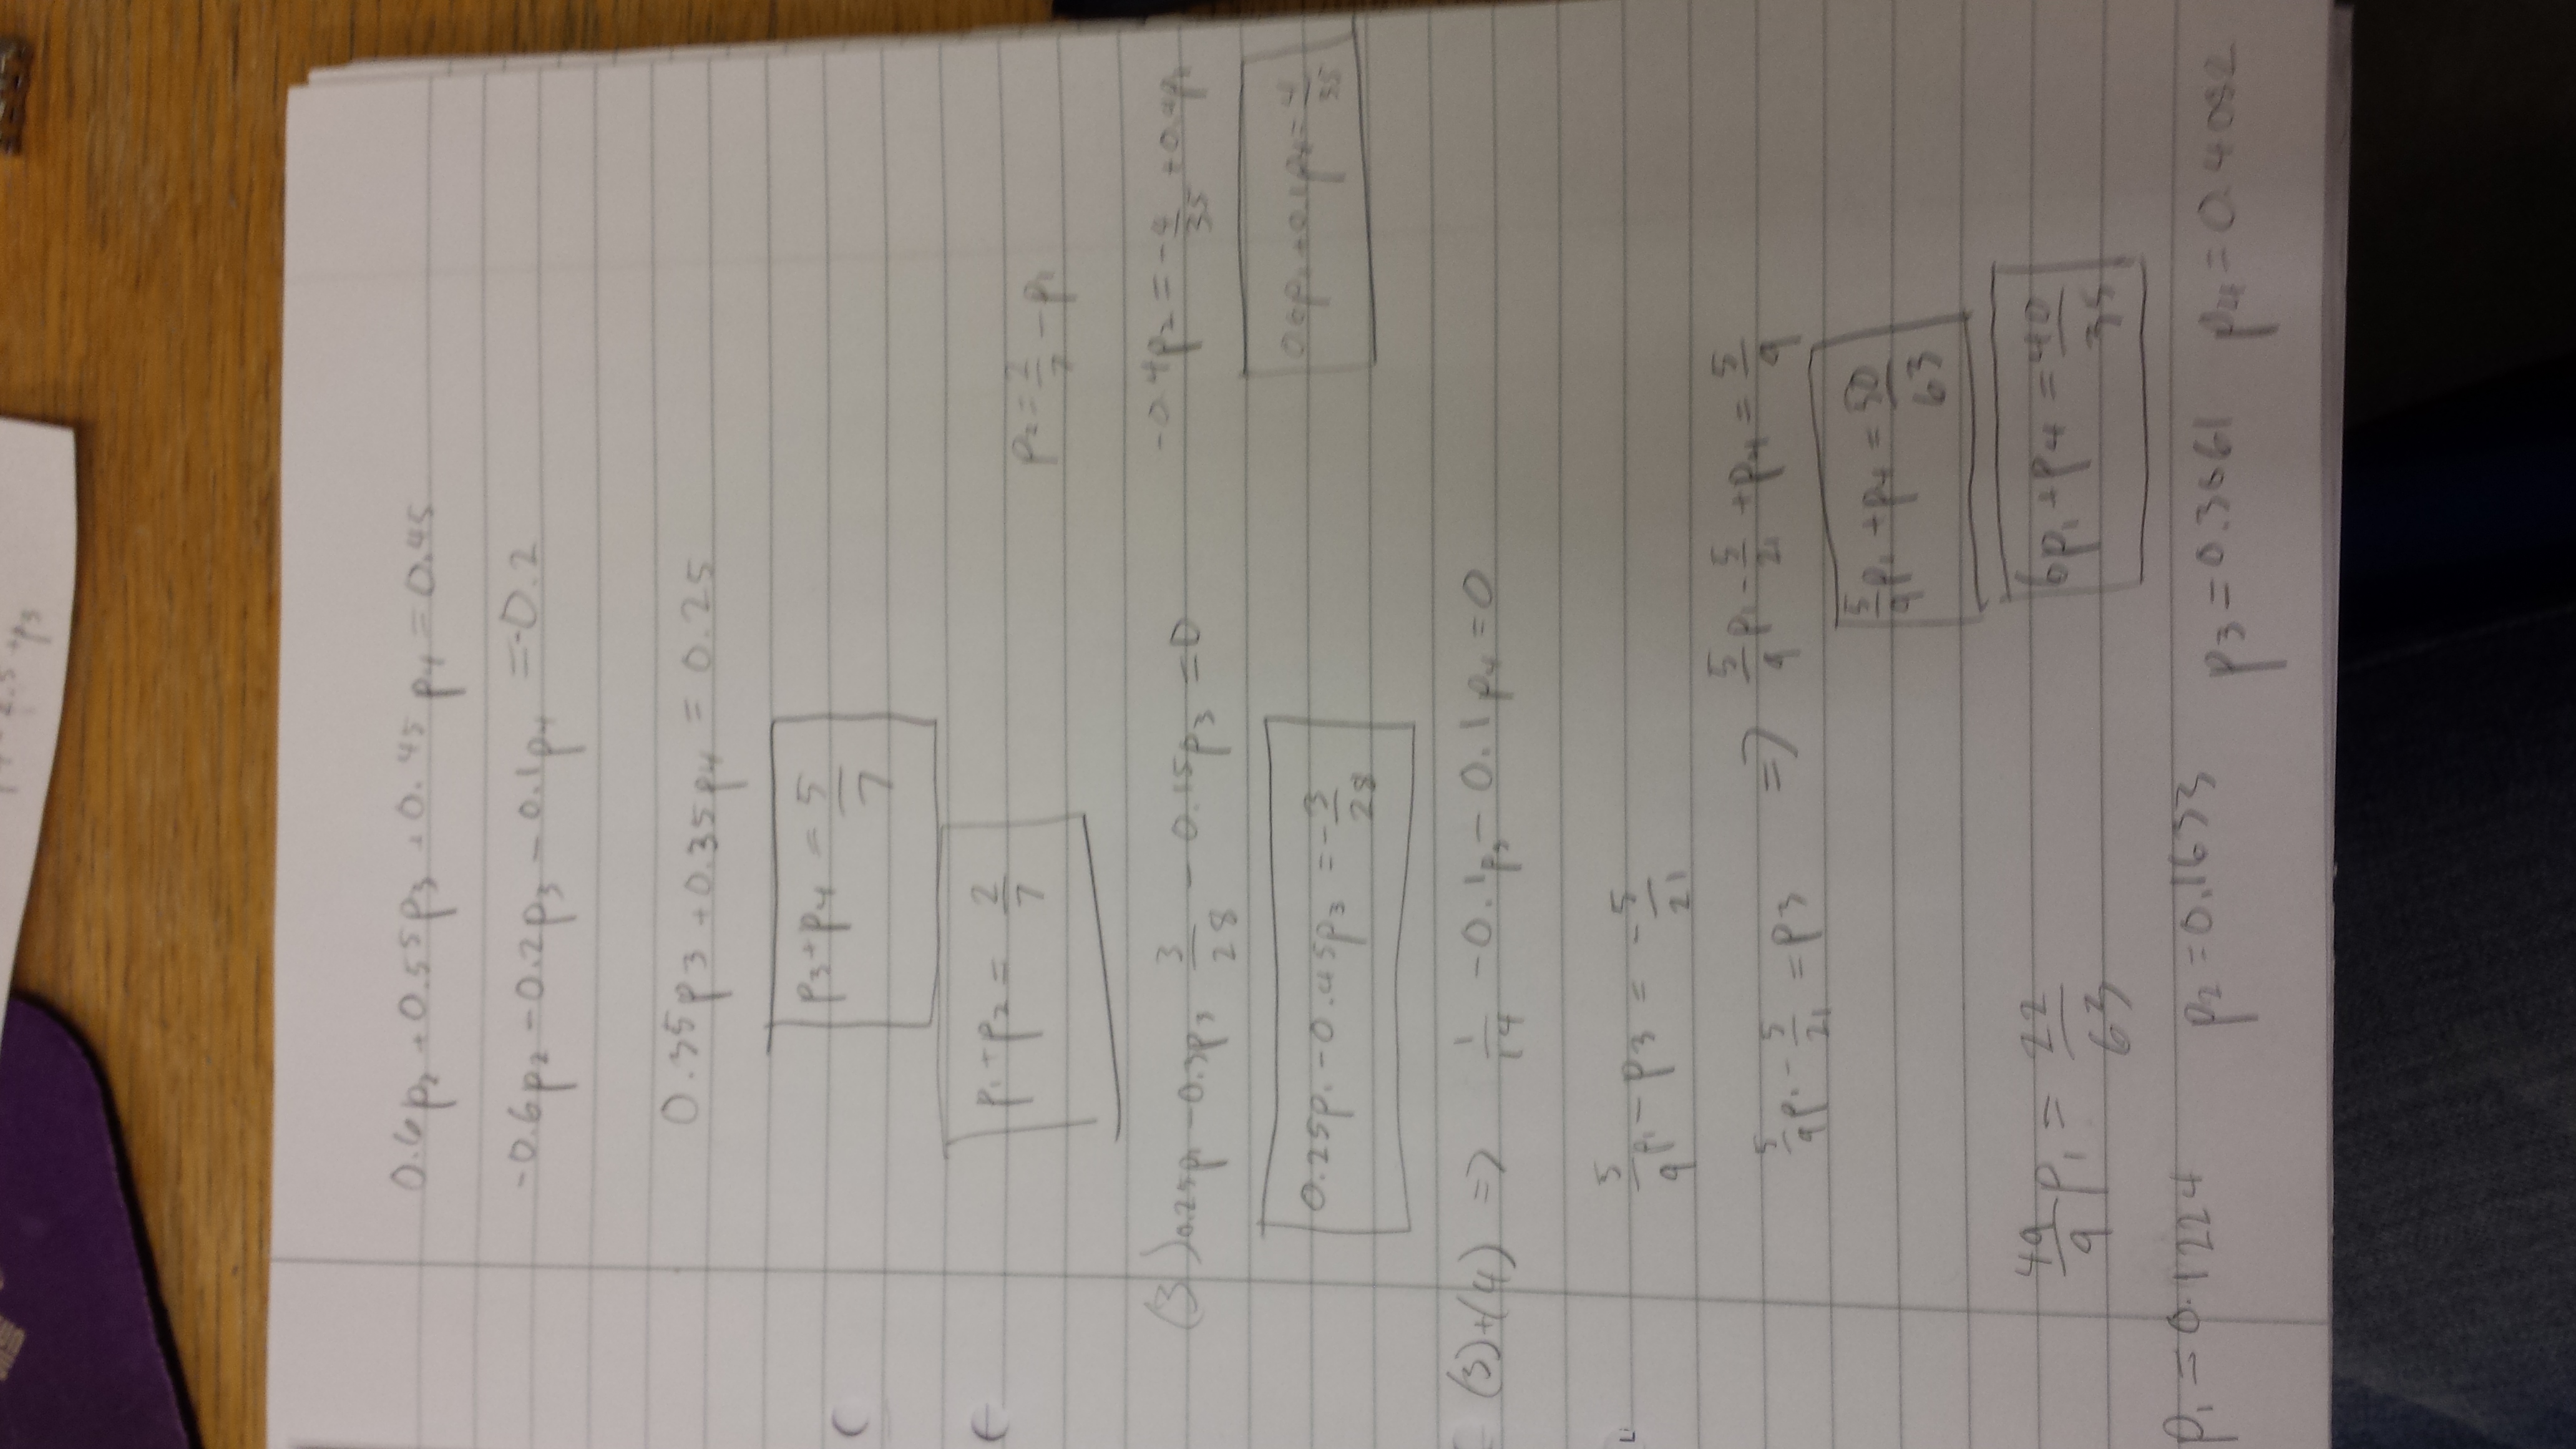 +p3
0.6p₂ + 0.55p₃ + 0.45p₄ = 0.45
-0.6p₂ - 0.2p₃ - 0.1p₄ = -0.2
0.35p3 + 0.35p4 = 0.25
p3 + p4 = 5/7
p₁ + p2 = 2/7
p₂ = 2/7 - p₁
(3) 0.25p₁ - 0.3p3 3/28 - 0.15p₃ = 0
-0.4p₂ = -4/35 + 0.4p₁
0.25p₁ - 0.45p₃ = -3/28
0.6p₁ + 0.1p₄ = 4/35
(3)+(4) => 1/14 - 0.1p₃ - 0.1p₄ = 0
5/9 p₁ - p3 = -5/21
5/9 p₁ - 5/21 = p3 => 5/9 p₁ - 5/21 + p4 = 5/9
5/9 p₁ + p4 = 50/63
49/9 p₁ = 22/63
6p₁ + p4 = 40/35
p₁ = 0.1224 p₂ = 0.1633 p3 = 0.3061 p4 = 0.4082